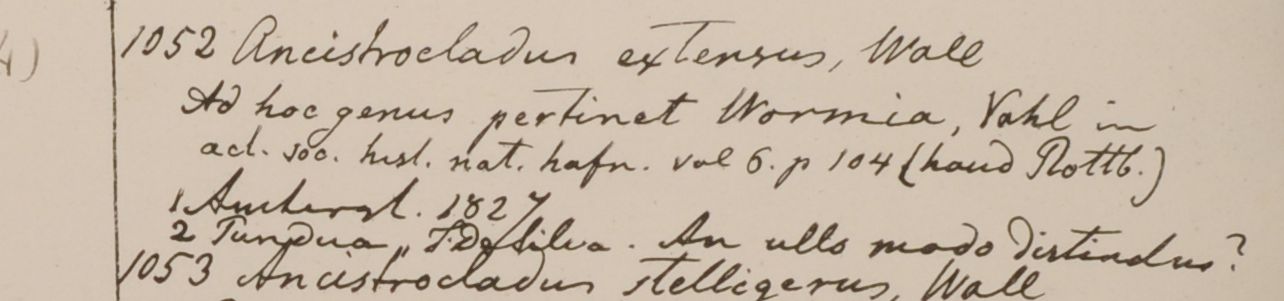 4)
1052 Ancistrocladus extensus, Wall
Ad hoc genus pertinet Wormia, Vahl in
act. soc. hist. nat. hafn. vol 6. p 104 (haud Rottb.)
1 Amherst. 1827
2 Pundua ,, F.De Silva. An ullo modo distinctus?
1053 Ancistrocladus stelligerus, Wall